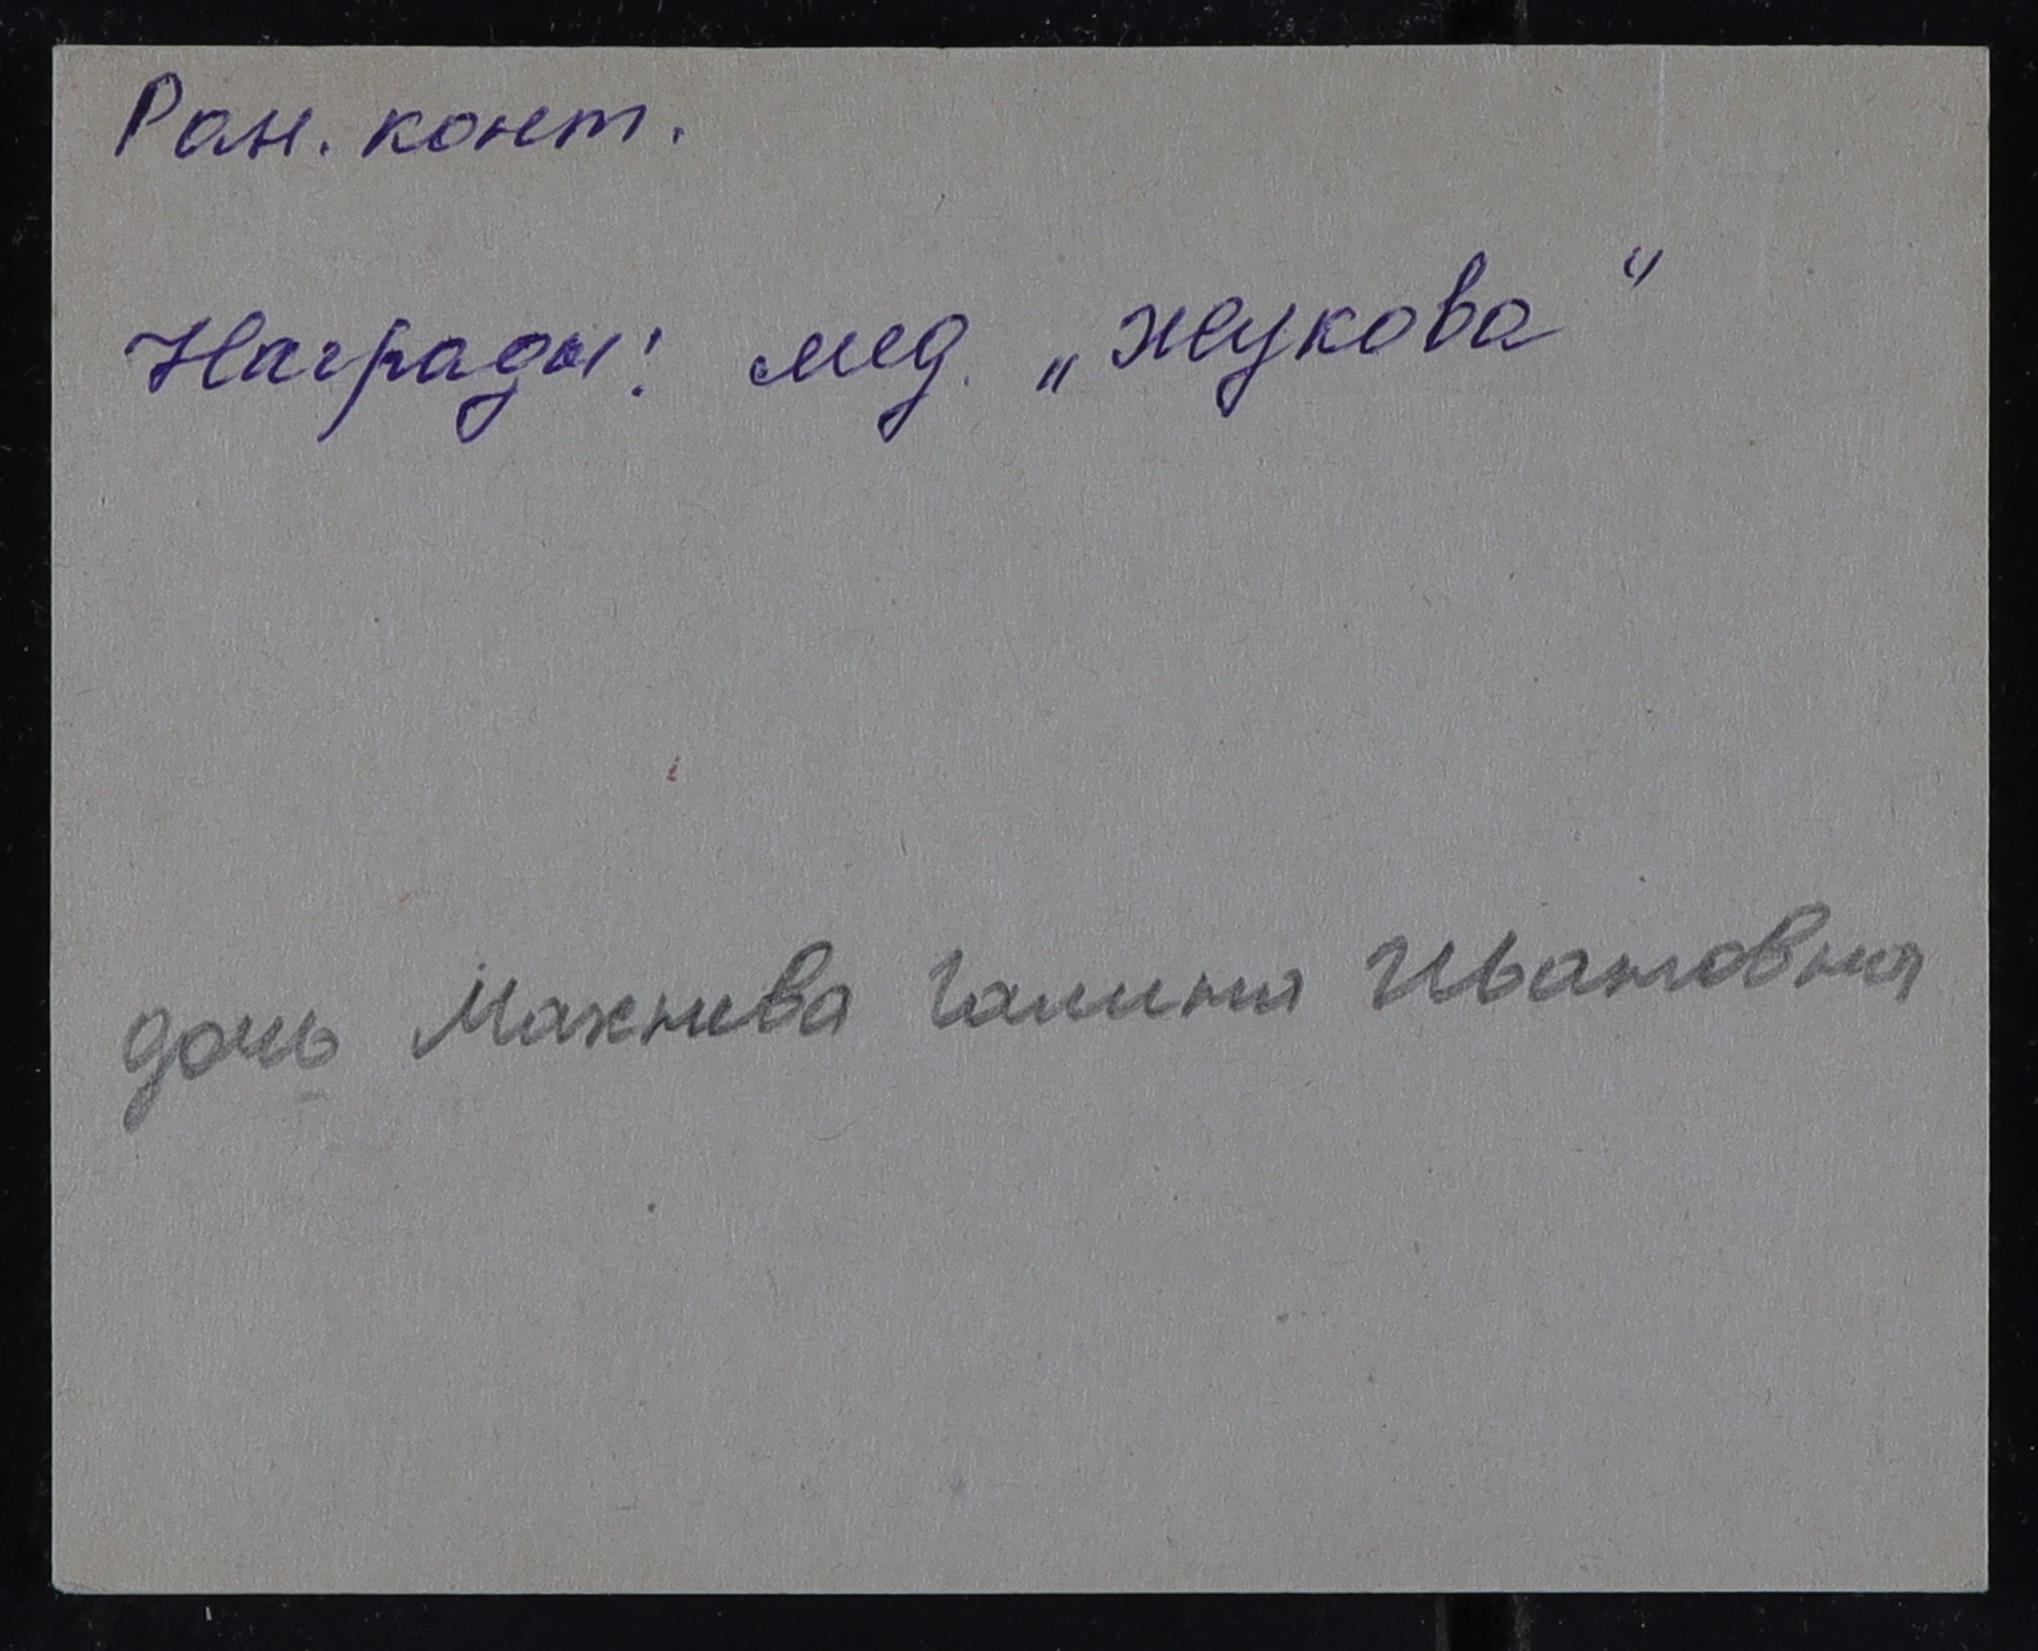 Ран. конт.
Награды: мед. „Жукова“
дочь Махнева Галина Ивановна